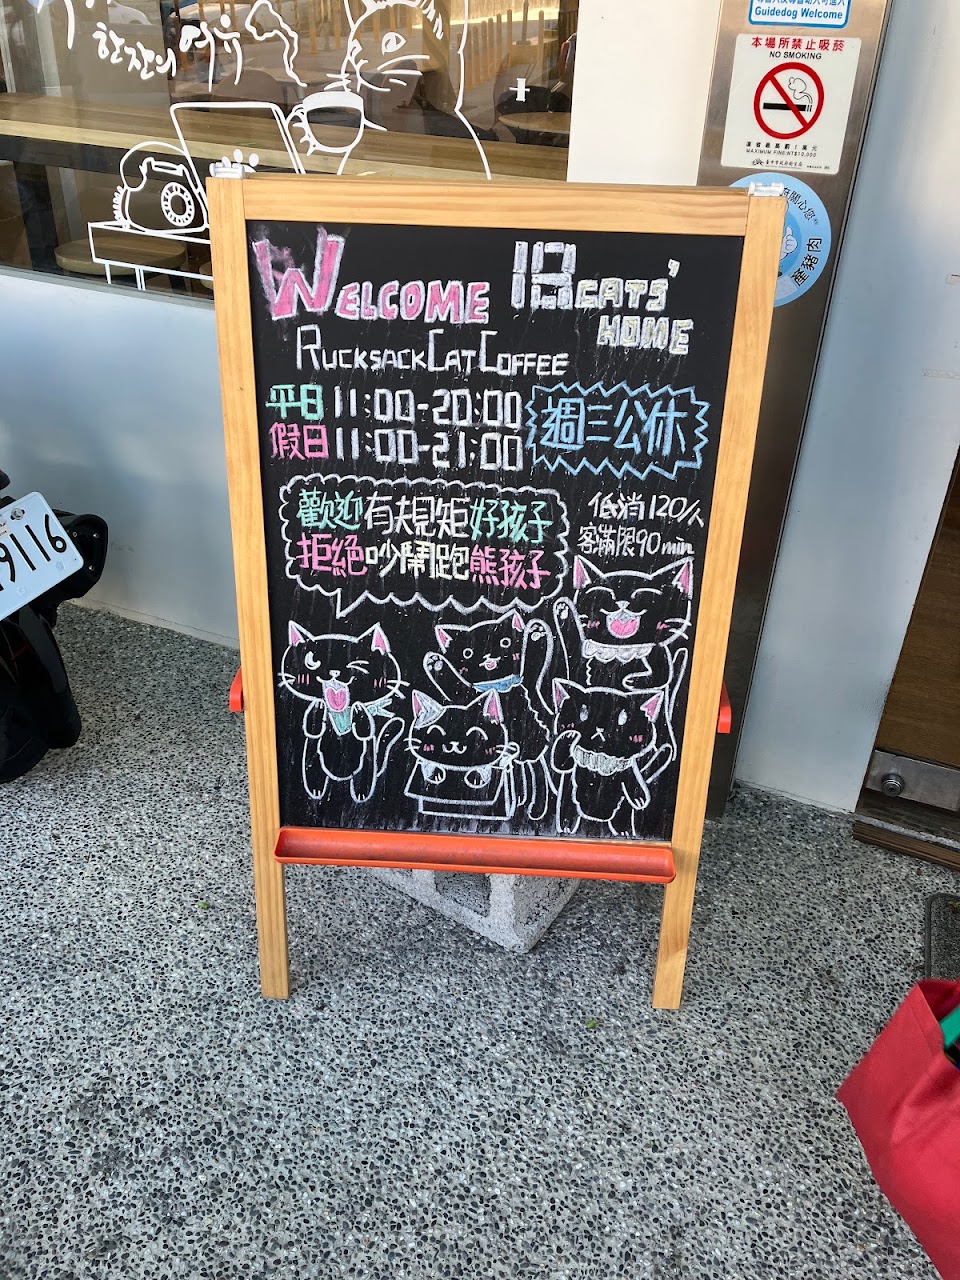 한잔의 여유
Guidedog Welcome
本場所禁止吸菸
NO SMOKING
違者最高罰1萬元
MAXIMUM FINE:NT$10,000
臺中市政府衛生局
關心您
豬肉
9116
WELCOME 18 CATS'
HOME
RUCKSACK CAT COFFEE
平日 11:00-20:00
假日 11:00-21:00
週三公休
歡迎有規矩好孩子
拒絕吵鬧跑熊孩子
低消120/人
客滿限90min